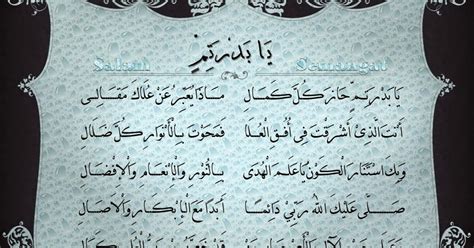 يَا بَدْرَتِمٍّ
Salam Semangat
يَا بَدْرَتِمٍّ حَازَ كُلَّ كَمَالِ مَاذَا يُعَبِّرُ عَنْ عُلَاكَ مَقَالِى
أَنْتَ الَّذِىْ أَشْرَقْتَ فِى أُفُقِ الْعُلَا فَمَحَوْتَ بِالْأَنْوَارِ كُلَّ ضَلَالِ
وَبِكَ اسْتَنَارَ الْكَوْنُ يَاعَلَمَ الْهُدَى بِالنُّوْرِ وَالْإِنْعَامِ وَالْإِفْضَالِ
صَلَّى عَلَيْكَ اللهُ رَبِّيْ دَائِمًا أَبَدًا مَعَ الْإِبْكَارِ وَالْآصَالِ